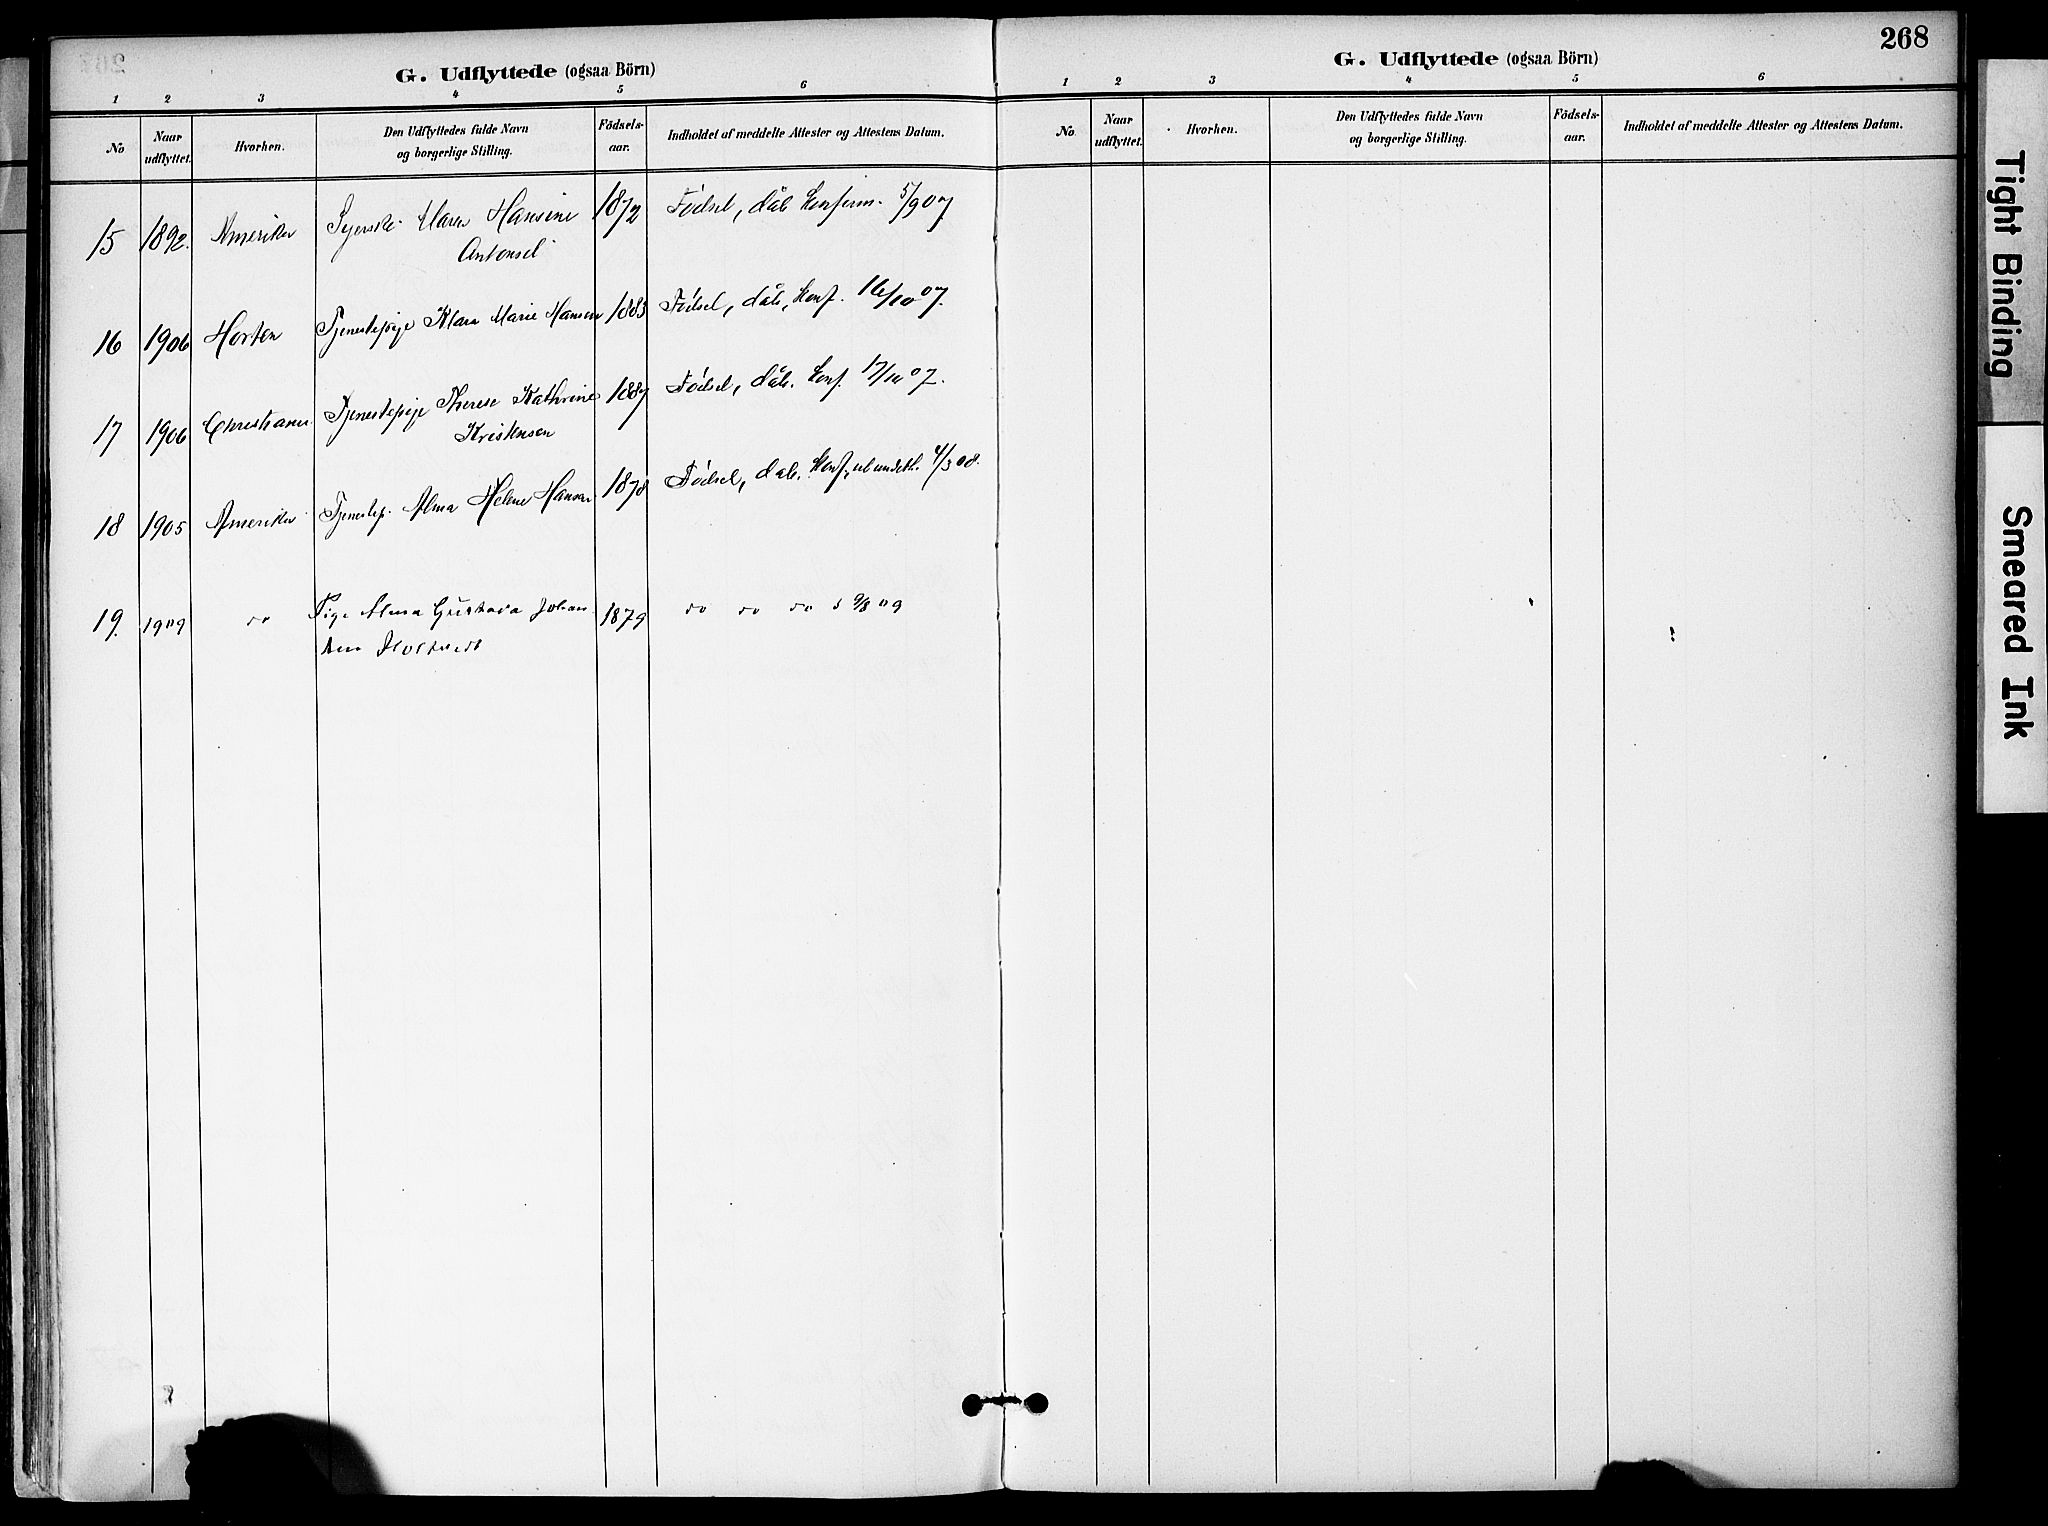 G. Udflyttede (ogsaa Börn)
1 2 3 4 5 6
No Naar udflyttet. Hvorhen. Den Udflyttedes fulde Navn og borgerlige Stilling. Födsels-aar. Indholdet af meddelte Attester og Attestens Datum.
15 1892. Amerika Syerske Maren Hansine 1872 Födsel, dåb konfirm. 5/9 07
Antonsel
16 1906 Horten Tjenestepige Klara Marie Hansen 1883 Födsel, dåb, konf. 16/10 07.
17 1906 Christiania Tjenestepige Therese Kathrine 1887 Födsel, dåb. konf. 17/10 07.
Kristensen
18 1905 Amerika Tjenestep. Alma Helene Hansen 1878 Födsel, dåb. konf, 4/3 08.
19. 1909 do Pige Alma Gustava Johan 1879 do do do 9/8 09
268
G. Udflyttede (ogsaa Börn)
1 2 3 4 5 6
No Naar udflyttet. Hvorhen. Den Udflyttedes fulde Navn og borgerlige Stilling. Födsels-aar. Indholdet af meddelte Attester og Attestens Datum.
Tight Binding
Smeared Ink